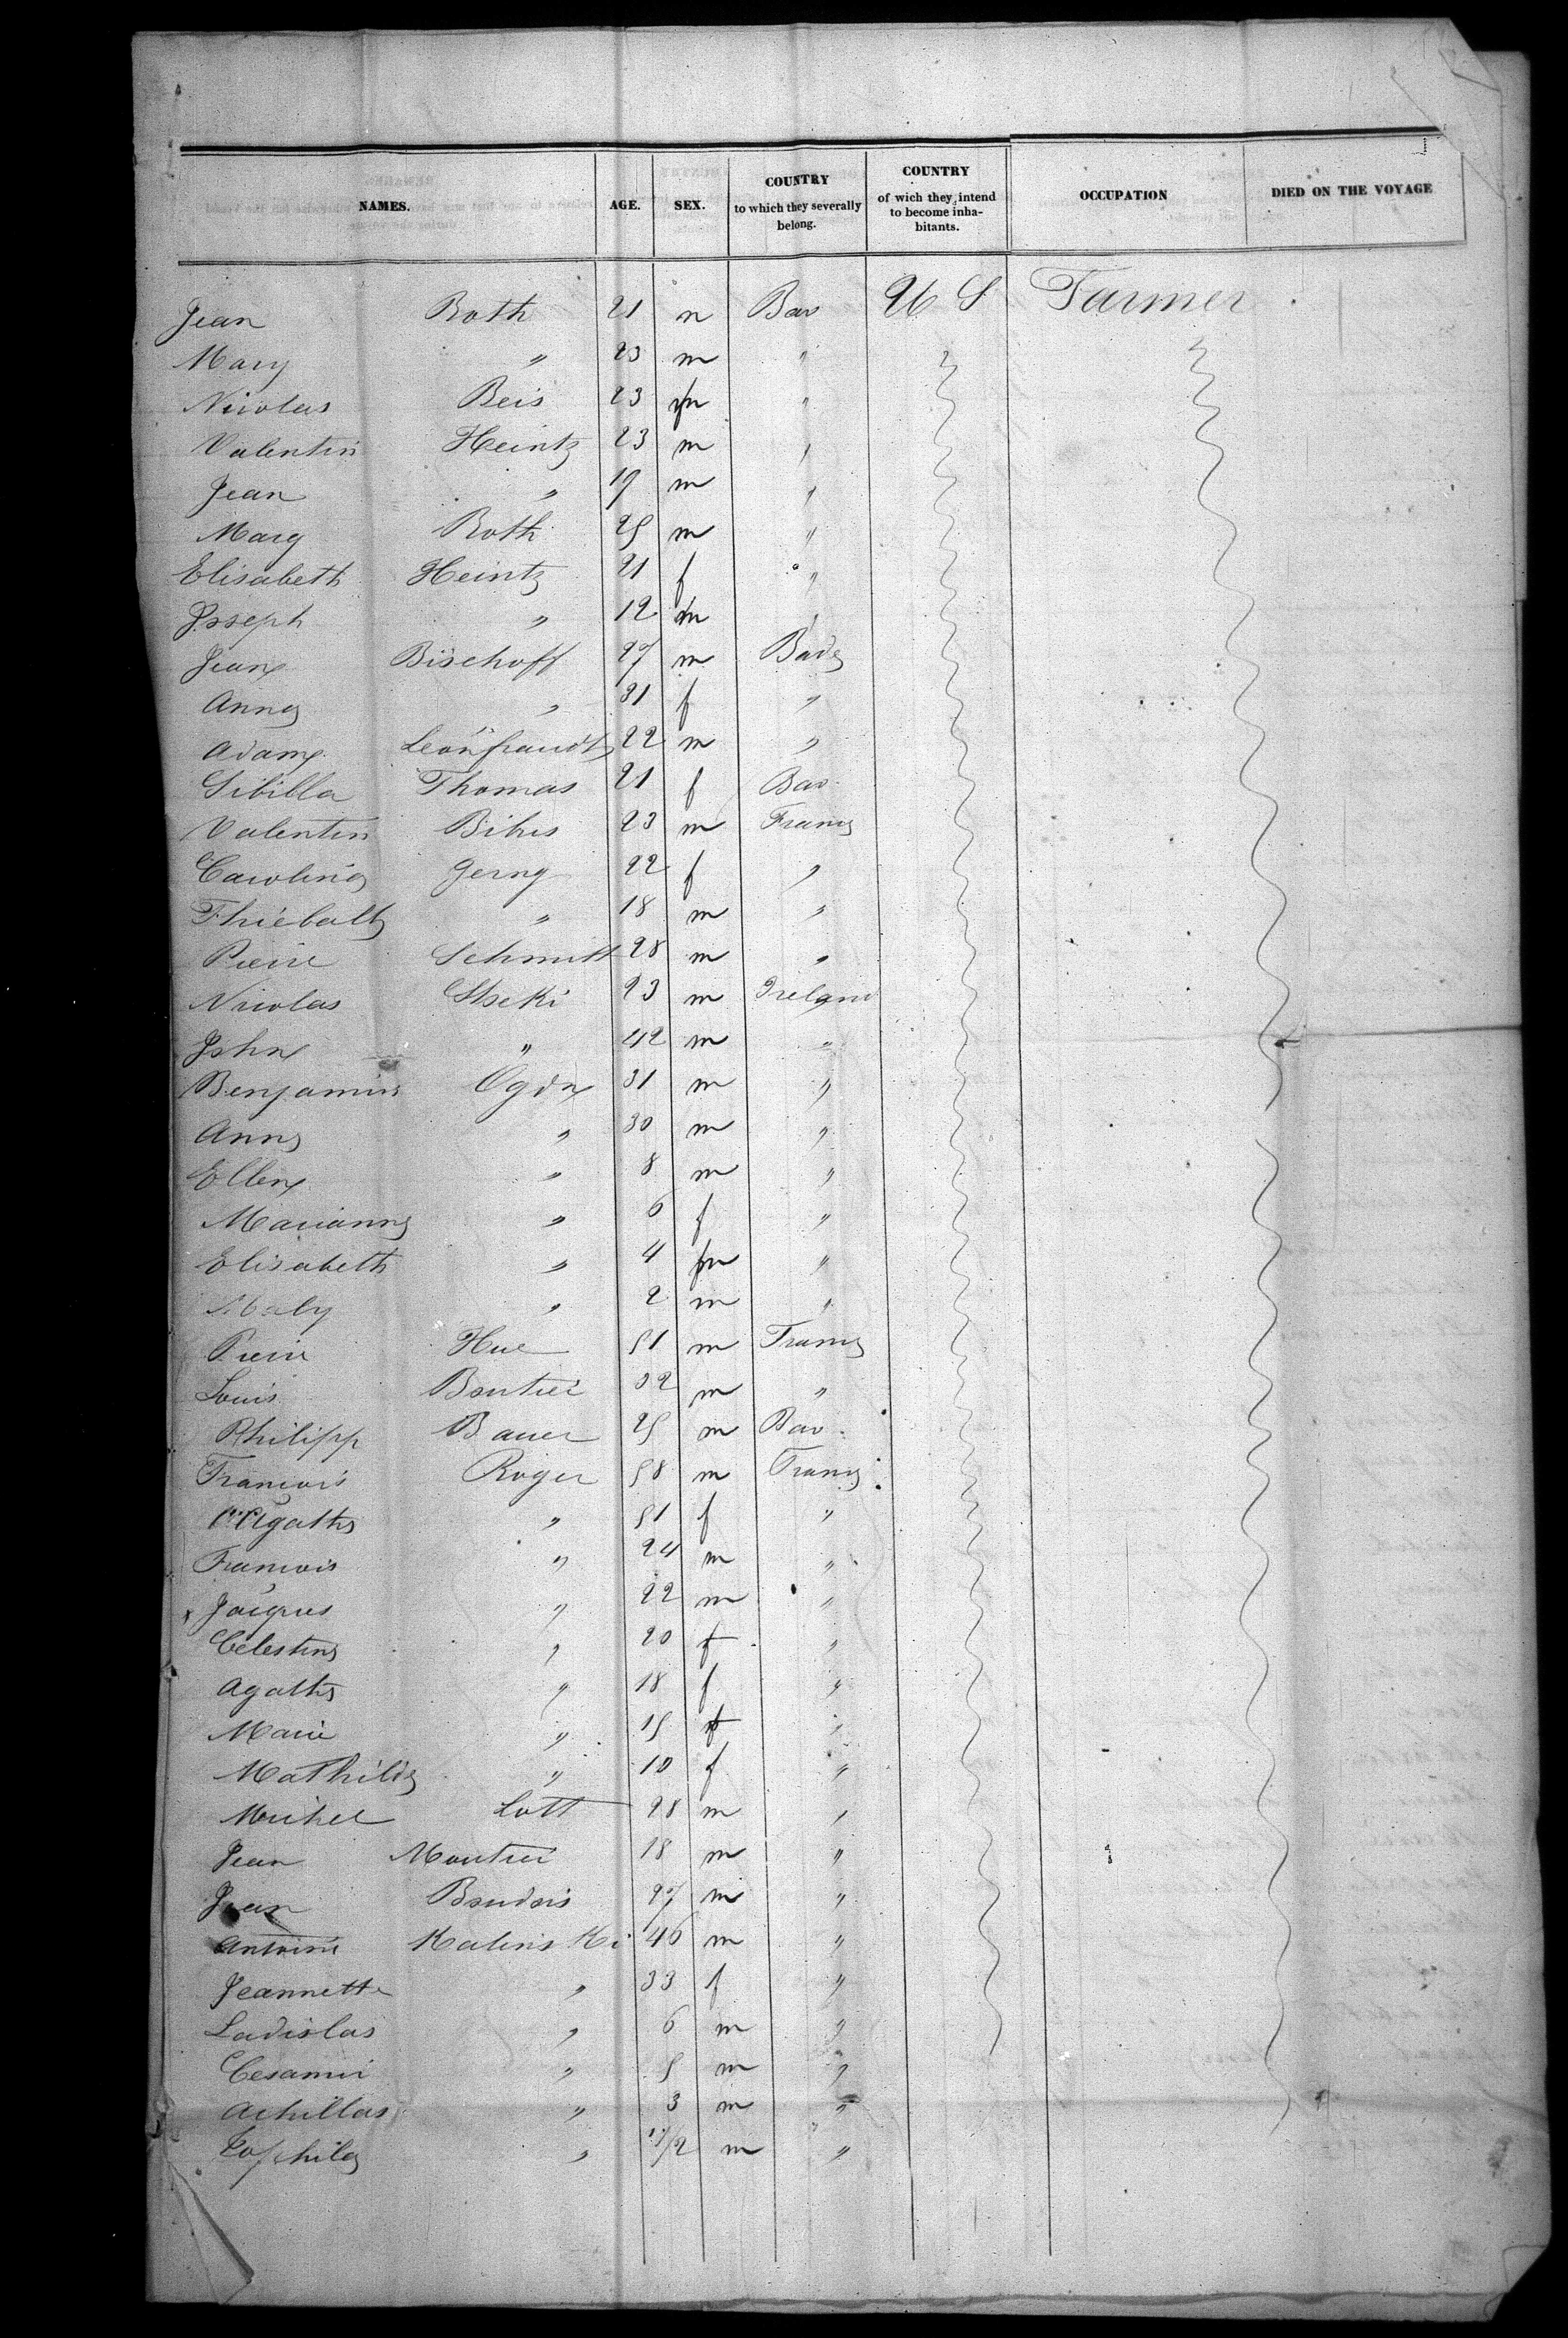 NAMES. AGE. SEX. COUNTRY to which they severally belong. COUNTRY of wich they intend to become inha- bitants. OCCUPATION DIED ON THE VOYAGE
Jean Roth 21 m Bav U S Farmer
Marg " 23 m "
Nicolas Beis 23 m "
Valentin Heintz 23 m "
Jean " 19 m "
Marg Roth 25 m "
Elisabeth Heintz 21 f "
Joseph " 12 m "
Jean Bischoff 27 m Bade
Anna " 31 f "
Adam 22 m "
Sibilla Thomas 21 f Bav.
Valentin 23 m France
Caroline Jerny 22 f "
Thiebalt " 18 m "
Pierre Schmitt 28 m "
Nicolas 23 m Ireland
John " 42 m "
Benjamin Ogdn 31 m "
Anna " 30 m "
Ellen " 8 m "
Marianne " 6 f "
Elisabeth " 4 m "
" 2 m "
Pierre Hue 51 m France
Louis 32 m "
Philipp Bauer 25 m Bav.
Francois Roger 58 m France
Agathe " 51 f "
Francois " 24 m "
Jacques " 22 m "
Celestine " 20 f "
Agathe " 18 f "
Marie " 15 f "
Mathilde " 10 f "
Michel Lott 28 m "
Jean 18 m "
Jean Baudois 27 m "
Antoine Kalinski 46 m "
Jeannette " 33 f "
Ladislas " 6 m "
" 5 m "
Achillas " 3 m "
" 1/2 m "